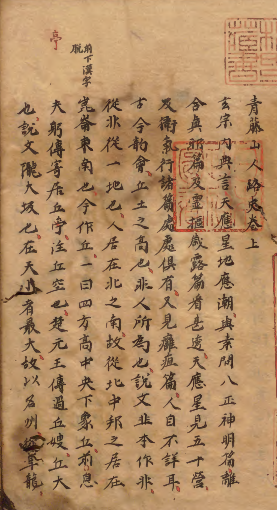 青藤山人路史卷上
玄宗內典言天應星地應潮與素問八正神明篇離
合真邪論及靈樞歲露篇看甚透天應星見五十營
及衛氣行諸篇處處俱有又見癰疽篇人自不詳耳
古今韵會丘土之高也非人所為也說文丘本作北
從北從一地也人居在北之南故從北中邦之居在
崑崙東南也今作丘一曰四方高中央下象丘前息
夫躬傳寄居丘亭注丘空也楚元王傳過丘嫂丘大
也說文隴大坂也在天水有最大故以名州
亭
前下漢字
脫